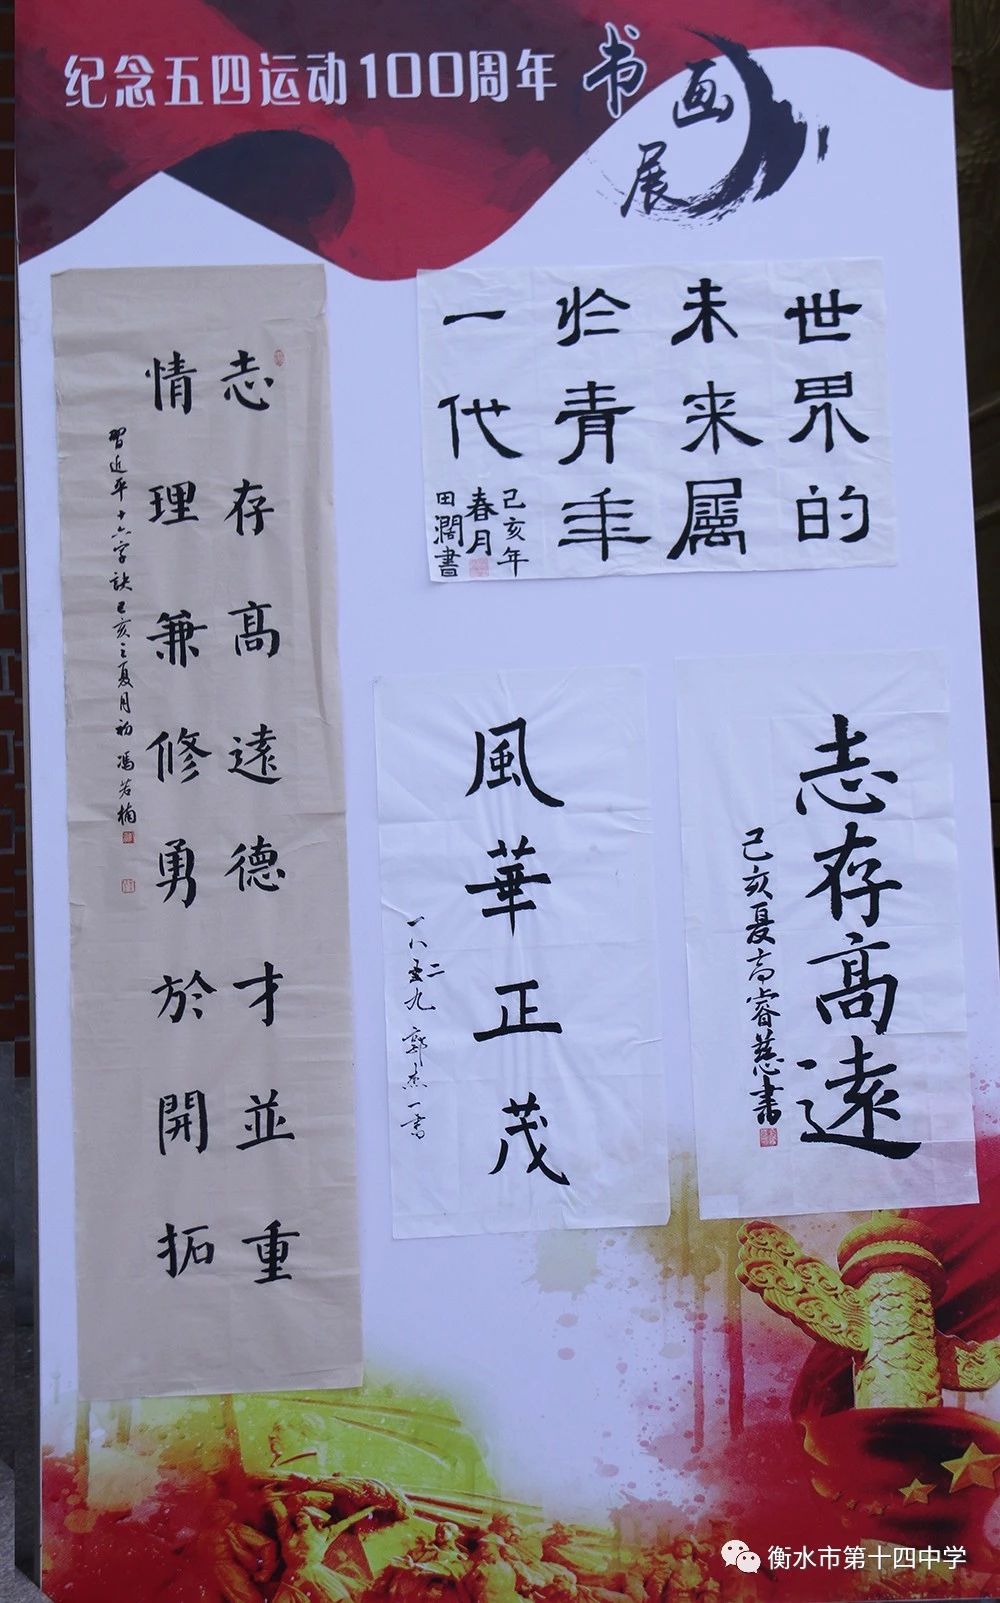 纪念五四运动100周年
书画展
志存高遠德才並重
情理兼修勇於開拓
習近平十六字訣己亥之夏月初馮若楠
世界的
未来屬
於青年
一代
己亥年
春月
田濶書
風華正茂
志存高遠
己亥夏高睿慈書
衡水市第十四中学